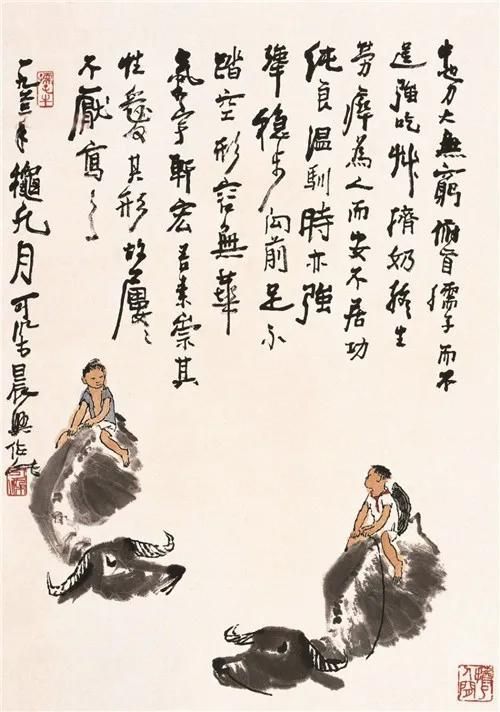 牛也力大無窮俯首孺子而不
逞強吃艸擠奶終生
勞瘁為人而安不居功
純良溫馴時亦強
犟穩步向前足不
踏空形容無華
氣宇軒宏吾素崇其
性愛其形故屢〻
不厭寫之
一九六二年穐九月可染晨興作